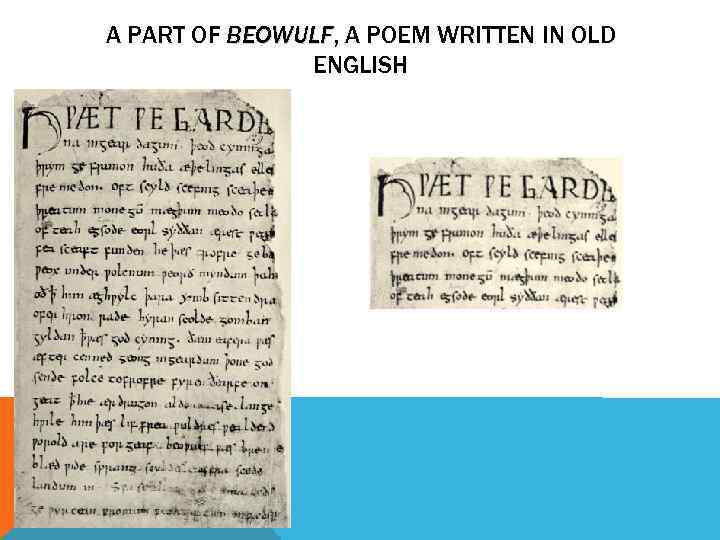 A PART OF BEOWULF, A POEM WRITTEN IN OLD
ENGLISH
HǷÆT ǷE GARDE
na ingear dagum. þeod cyninga
þrym ge frunon huða æþelingas elle
fre medon. oft scyld scefing sceaþe
þreatum monegū mægþum meodo setla
of teah egsode eorl syððan ærest ƿear
fea sceaft funden he þæs frofre geba
ƿeox under ƿolcnum ƿeorð myndum þah
oð þ him æghƿylc þara ymb sittendra
ofer hron rade hyran scolde gomban
gyldan þæt ƿæs god cyning. ðæm eafera ƿæs
æfter cenned geong ingeardum þone god
sende folce tofrofre fyren ðearfe on
geat þ hie ær drugon aldor ase. lange
hƿile him þæs lif frea ƿuldres ƿealdend
ƿorold are forgeaf. beoƿulf ƿæs
blæd ƿide sprang
landum in.
HǷÆT ǷE GARDE
na ingear dagum. þeod cyninga
þrym ge frunon huða æþelingas elle
fre medon. oft scyld scefing sceaþe
þreatum monegū mægþum meodo setla
of teah egsode eorl syððan ærest ƿear